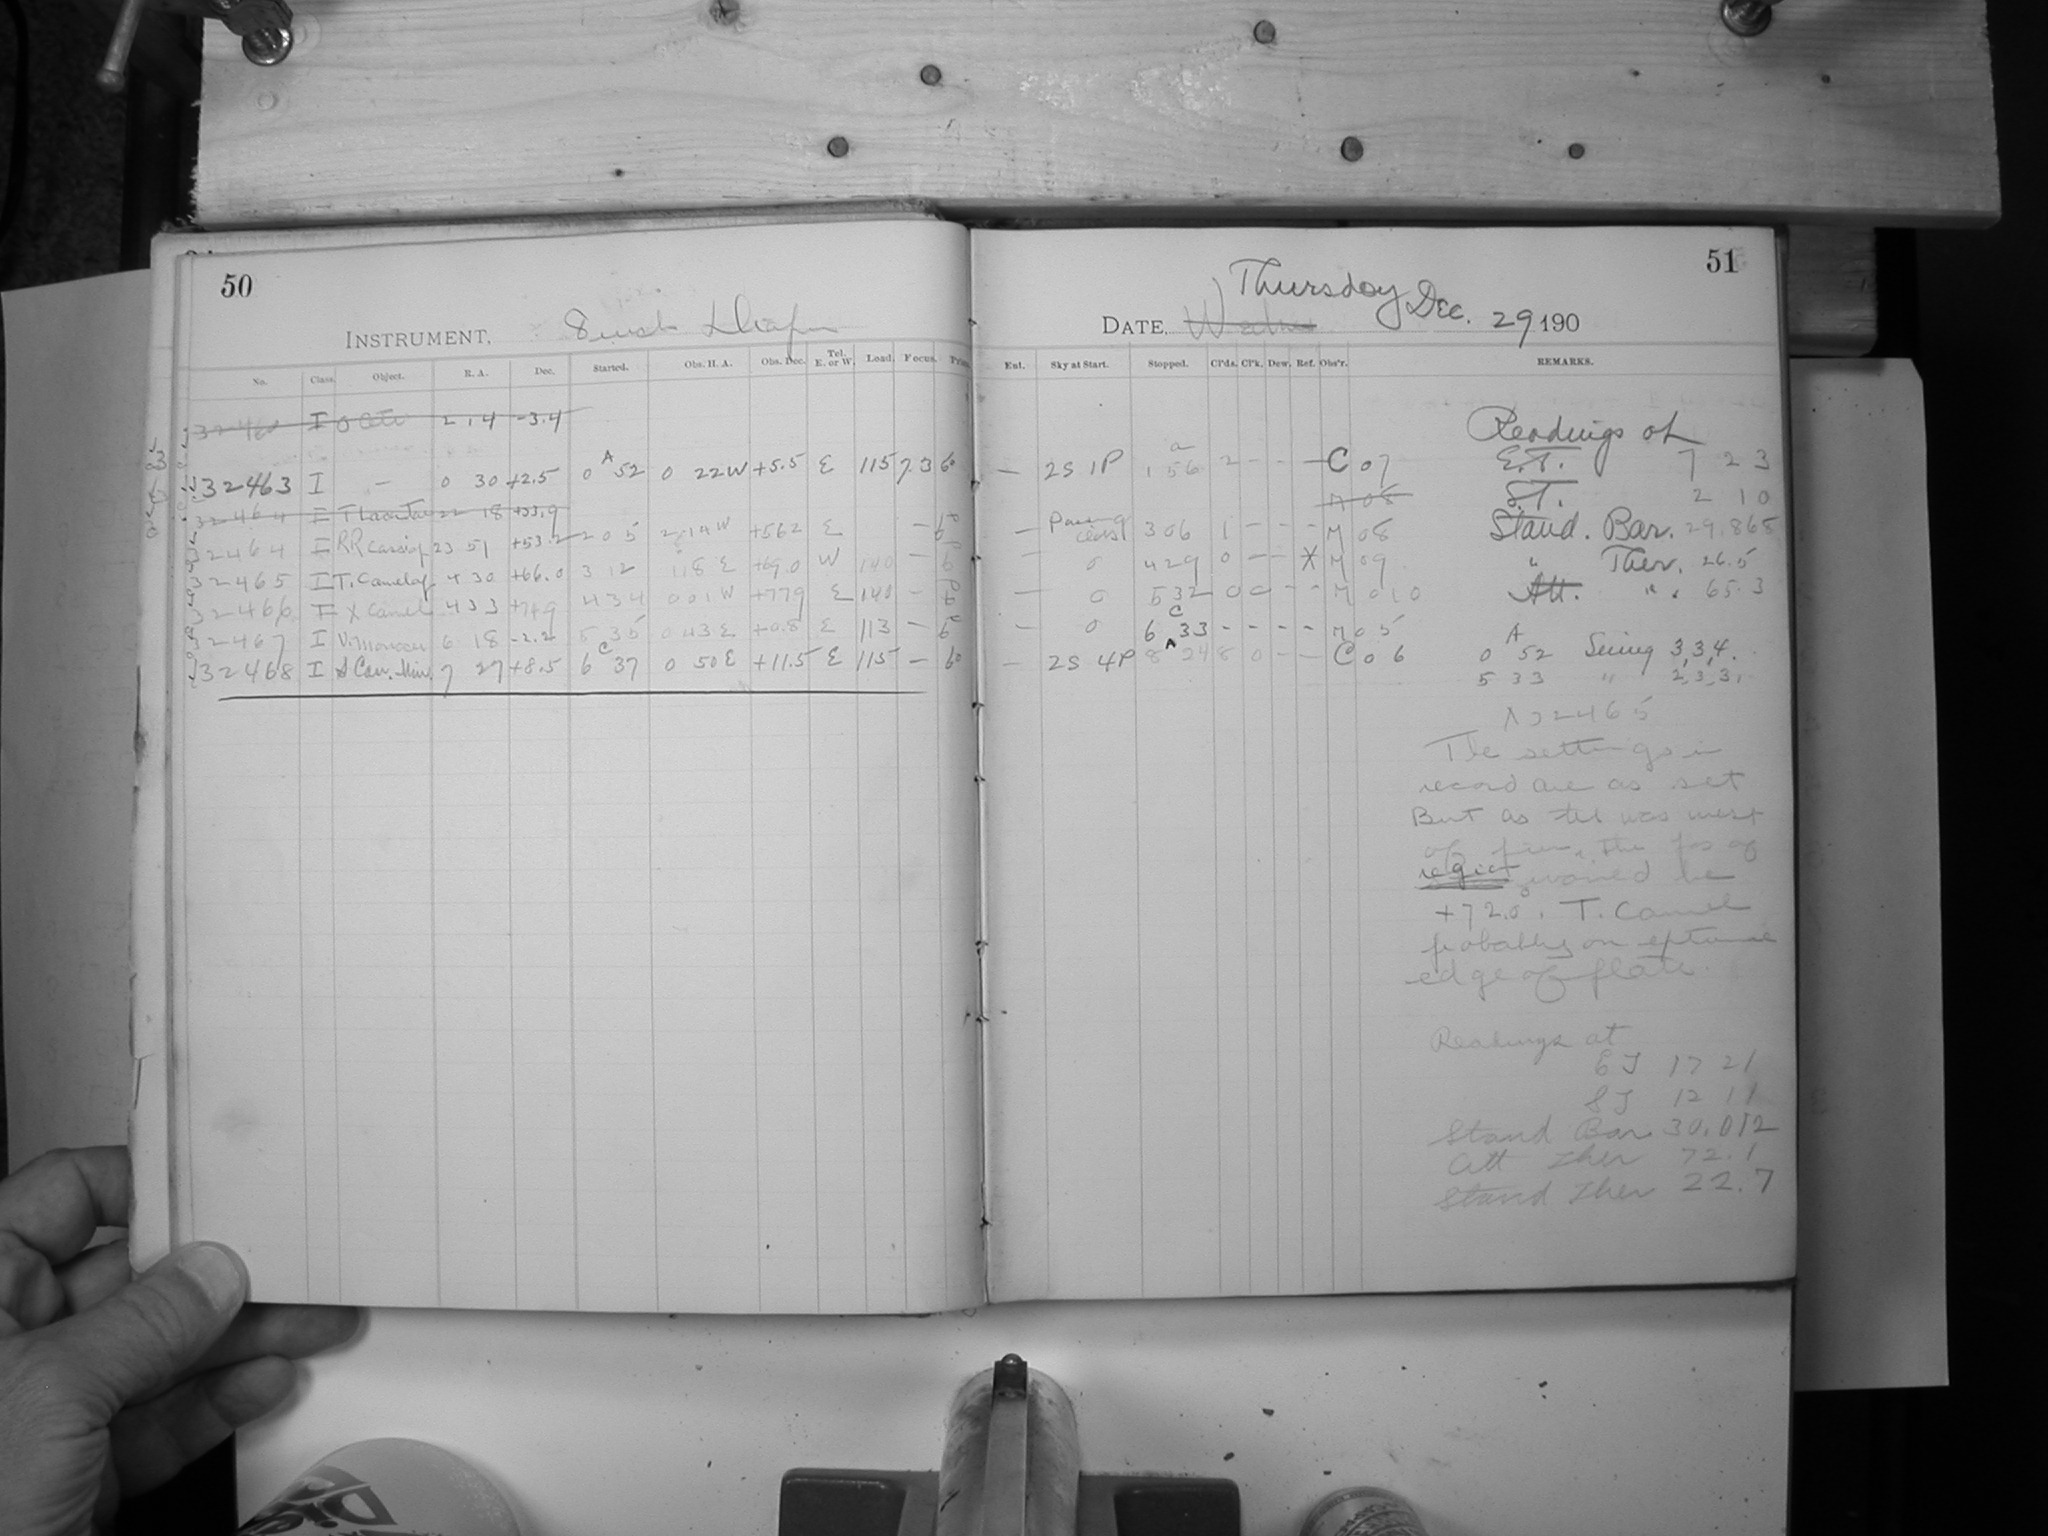 50
INSTRUMENT, 8 inch Draper
No. Class. Object. R. A. Dec. Started. Obs. H. A. Obs. Dec. Tel. E. or W. Load. Focus.
I o Ceti 2 14 -3.4
32463 I — 0 30 +2.5 0 A 52 0 22W +5.5 E 115 7.3 60
32464 I 22 18 +33.9
32464 I RR Cassiop 23 51 +53.2 2 05 2 14 W +56.2 E —
32465 I T. Camelop. 4 30 +66.0 3 12 1 18 E +69.0 W 140 —
32466 I X Camel 4 33 +74.9 4 34 0 01 W +77.9 E 140 —
32467 I V. Monocer 6 18 -2.2 5 35 0 43 E +0.8 E 113 —
32468 I S Can. Min. 7 27 +8.5 6 C 37 0 50E +11.5 E 115 — 60
51
Thursday
DATE, Dec. 29 190
Ent. Sky at Start. Stopped. Cl'ds. Cl'k. Dew. Ref. Obs'r. REMARKS.
Readings at
— 2S 1P 1 a 56 2 - - — C 07 E.T. 7 23
M 08 S.T. 2 10
— Passing clds 3 06 1 - - - M 08 Stand. Bar. 29.865
— 0 4 29 0 - - X M 09 " Ther. 26.5
— 0 5 32 0 0 - - M 010 Att. " 65.3
— 0 6 C 33 - - - - M 05
— 2S 4P 8 A 24 8 0 - - C 06 0 A 52 Seeing 3,3,4.
5 33 " 2,3,3,
X 32465
The settings in
record are as set
But as tel was west
of pier, the pos of
region would be
+72.0°. T. Camel
probably on extreme
edge of plate.
Readings at
ET 17 21
ST 12 11
Stand Bar 30.012
Att Ther 72.1
Stand Ther 22.7